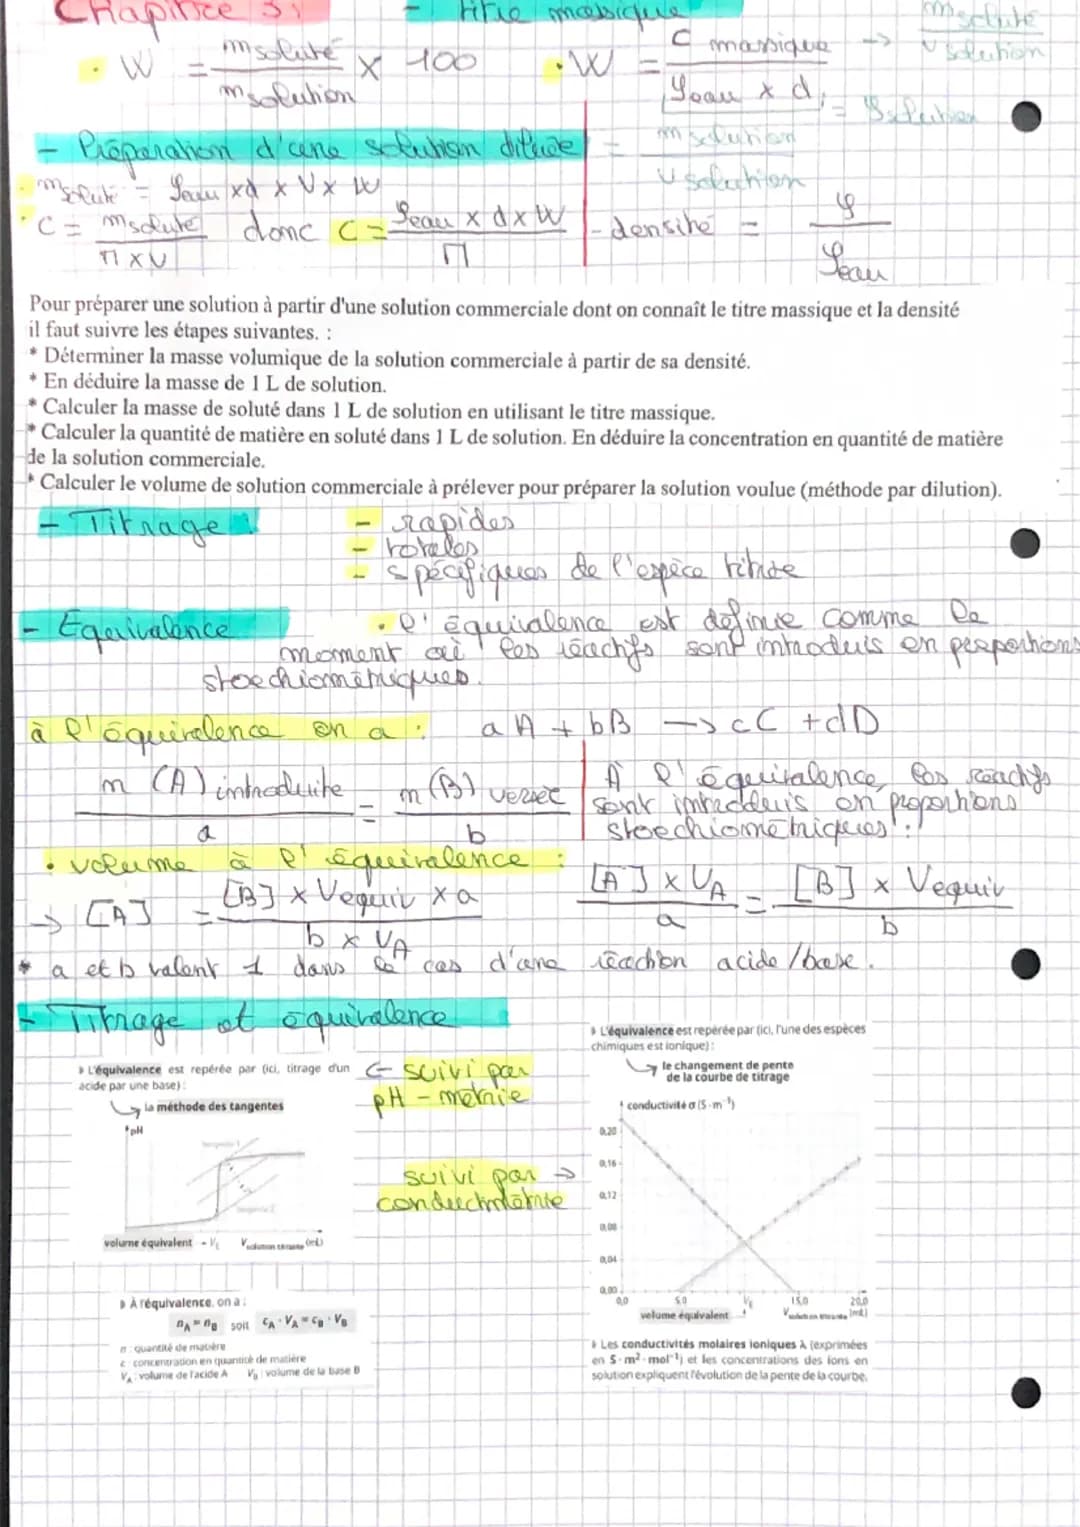 Chapitre 3:
- titre massique
m soluté
• W = m soluté / m solution x 100
• W = C massique / ρeau x d
→ m soluté / v solution
= ρsolution
= m solution / v solution
- Préparation d'une solution diluée
• m soluté = ρeau x d x V x W
• C = m soluté / M x V donc C = ρeau x d x W / M
- densité = ρ / ρeau
Pour préparer une solution à partir d'une solution commerciale dont on connaît le titre massique et la densité
il faut suivre les étapes suivantes. :
* Déterminer la masse volumique de la solution commerciale à partir de sa densité.
* En déduire la masse de 1 L de solution.
* Calculer la masse de soluté dans 1 L de solution en utilisant le titre massique.
* Calculer la quantité de matière en soluté dans 1 L de solution. En déduire la concentration en quantité de matière
de la solution commerciale.
* Calculer le volume de solution commerciale à prélever pour préparer la solution voulue (méthode par dilution).
- Titrage :
- rapides
- totales
- spécifiques de l'espèce titrée
- Equivalence
• l'équivalence est définie comme le
moment où les réactifs sont introduis en proportions
stoechiométriques.
à l'équivalence on a :
aA + bB → cC + dD
n (A) introduite / a = n (B) versée / b
A l'équivalence, les réactifs
sont introduis en proportions
stoechiométriques :
• volume à l'équivalence :
→ [A] = [B] x Vequiv x a / b x VA
[A] x VA / a = [B] x Vequiv / b
* a et b valent 1 dans le cas d'une réaction acide/base.
- Titrage et équivalence
L'équivalence est repérée par (ici, titrage d'un
acide par une base) :
la méthode des tangentes
pH
tangente 1
tangente 2
volume équivalent VE Vsolution titrante (mL)
← suivi par
pH-métrie
suivi par →
conductimétrie
À l'équivalence, on a :
nA = nB soit cA · VA = cB · VB
n : quantité de matière
c : concentration en quantité de matière
VA : volume de l'acide A VB : volume de la base B
L'équivalence est repérée par (ici, l'une des espèces
chimiques est ionique) :
le changement de pente
de la courbe de titrage
conductivité σ (S·m⁻¹)
0,20
0,16
0,12
0,08
0,04
0,00
0,0 5,0 VE 15,0 20,0
volume équivalent Vsolution titrante (mL)
Les conductivités molaires ioniques λ (exprimées
en S·m²·mol⁻¹) et les concentrations des ions en
solution expliquent l'évolution de la pente de la courbe.